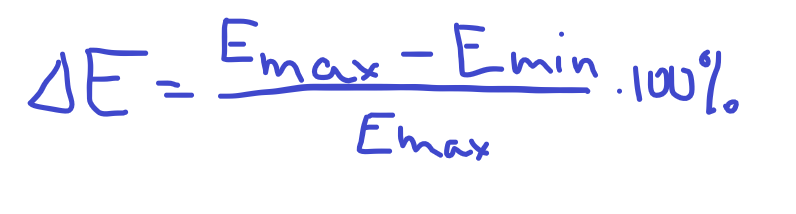 ΔE = (Emax − Emin) / Emax · 100%